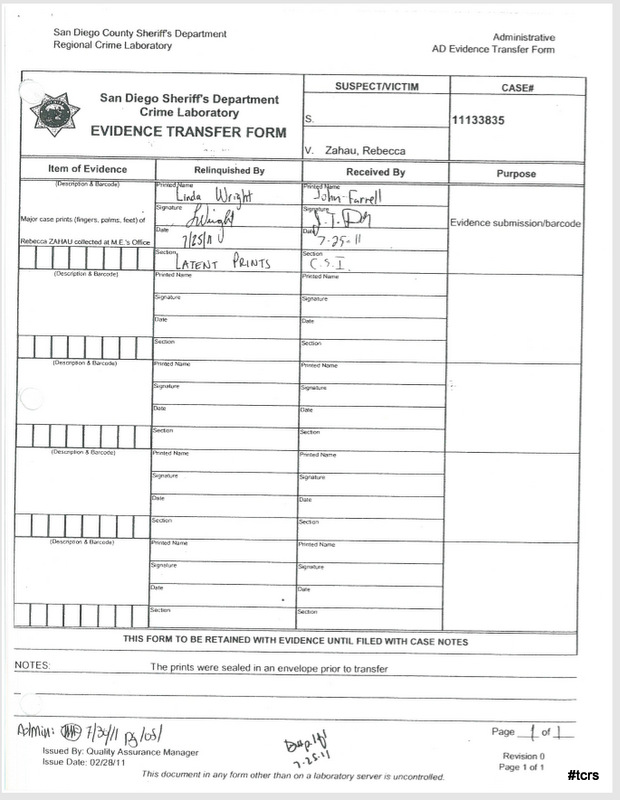 San Diego County Sheriff's Department
Regional Crime Laboratory
Administrative
AD Evidence Transfer Form
San Diego Sheriff's Department
Crime Laboratory
EVIDENCE TRANSFER FORM
SUSPECT/VICTIM
CASE#
S.
11133835
V. Zahau, Rebecca
Item of Evidence
Relinquished By
Received By
Purpose
(Description & Barcode)
Major case prints (fingers, palms, feet) of
Rebecca ZAHAU collected at M.E.'s Office
Printed Name
Linda Wright
Signature
LWright
Date
7/25/11
Section
LATENT PRINTS
Printed Name
John Farrell
Signature
Date
7-25-11
Section
C.S.I.
Evidence submission/barcode
(Description & Barcode)
Printed Name
Signature
Date
Section
Printed Name
Signature
Date
Section
(Description & Barcode)
Printed Name
Signature
Date
Section
Printed Name
Signature
Date
Section
(Description & Barcode)
Printed Name
Signature
Date
Section
Printed Name
Signature
Date
Section
(Description & Barcode)
Printed Name
Signature
Date
Section
Printed Name
Signature
Date
Section
THIS FORM TO BE RETAINED WITH EVIDENCE UNTIL FILED WITH CASE NOTES
NOTES: The prints were sealed in an envelope prior to transfer
Admin: 7/30/11 pg 1 of 1
7-25-11
Page 1 of 1
Issued By: Quality Assurance Manager
Issue Date: 02/28/11
Revision 0
Page 1 of 1
This document in any form other than on a laboratory server is uncontrolled.
#tcrs